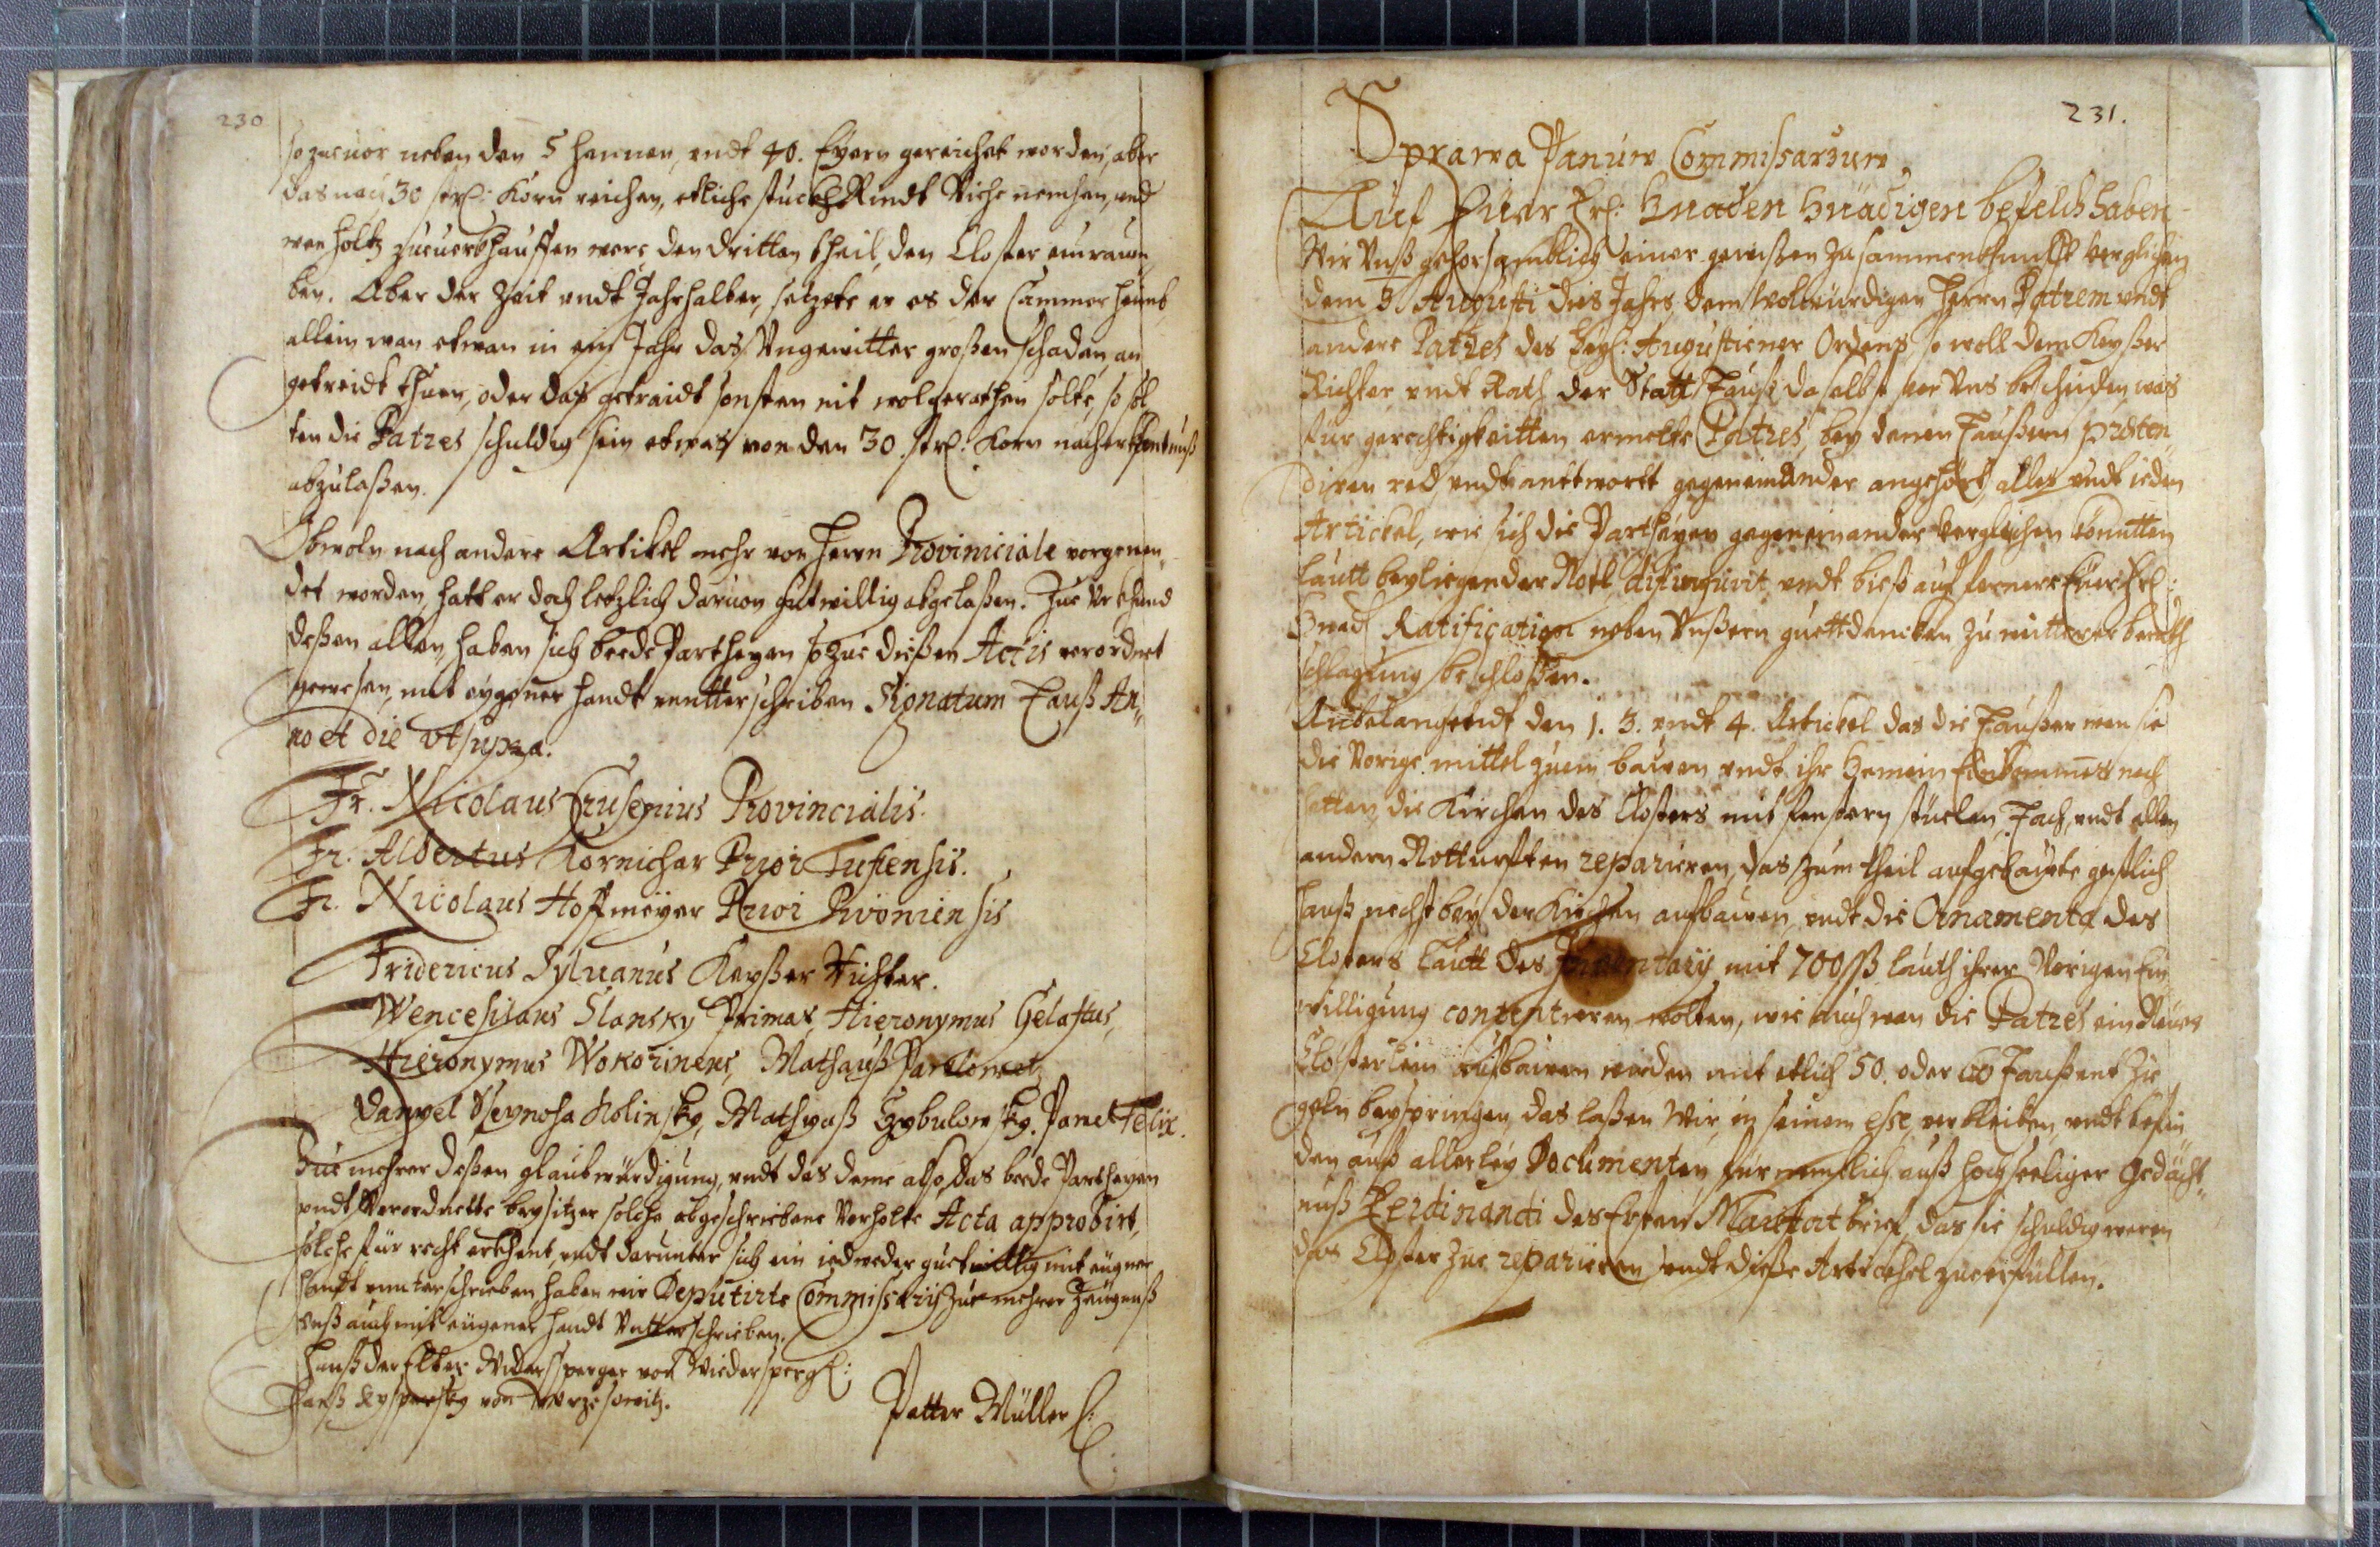 230
so zuuor neben den 5 hennen, undt 40. Eyern gereichet worden, aber
das nach 30 str: Korn reichen, etliche stuckh Rindt Viehe nemhen, und
wan holtz zuuerkhauffen were den dritten theil, dem Closter einraum,
ben. Aber der Zeit undt Jahrhalber, setzete er es der Cammer heimb,
allein wan etwan in ein Jahr das Ungewitter großen schaden, an
getreidt thuen, oder das getraidt sonsten nit wolgerathen solte, so sol
ten die Patres schuldig sein etwas von den 30. str: Korn nach erkhentnuß
abzulaßen.
Obwoln nach andere Artikel mehr von Herrn Proviniciale vorgewen„
det worden, hatt er doch letzlich daruon gutwillig abgelaßen. Zue Urkhund
deßen allen, haben sich beede Partheyen so zue dießen Actis verordnet
gewesen, mit eygener handt unntterschriben Signatum Tauß An„
no et die ut supra.
Fr. Nicolaus Crusenius Provincialis.
Fr. Albertus Kornichar Prior Tustensis.
Fr. Nicolaus Hoffmeyer Prior Pivoniensis
Fridericus Syluanus Keyßer Richter.
Wenceslaus Slansky Primas, Hieronymus Gelastus,
Hieronymus Wokorinens, Mathauß
Danyel Kolinsky, Mathyaß Cybulowsky. Panet Felix.
Zue mehrer deßen glaubwürdigung, undt das deme also, das beede Partheyen
undt Verordnette beysitzer solche abgeschriebene Verholte Acta approbirt,
solche für recht erkhent, undt darunter sich ein iedweder guetwillig mit eugner
handt unnterschrieben haben wir Deputirte Commissarij zue mehrer Zeugenß
Unß auch mit eugener handt Untterschrieben.
Hanß der Elter Widersperger von Widersperg:
Hanß von Wrzesowitz.
Petter Müller
231.
Sprawa Panuw Commissarzuw,
Auf Euer Gnaden Gnädigen befelch haben
Wir Unß gehorsamblich einer gewißen Zusammenkhunfft verglichen
dem 3. Augusti dies Jahrs, dem Wolwürdigen Herrn Patrem undt
andere Patres des heyl: Augustiener Ordenß, so woll dem Keyßer
Richter undt Rath der Statt Tauß daselbst vor Uns bescheiden, was
für gerechtigkeitten ermelte Patres, bey denen Taußern præten„
diren red undt anttwortt gegeneinander angehört, alles undt ieden
Artickel, wie sich die Partheyen gegeneinander vergleichen könntten
lautt beyliegender Notl distinguirt undt bieß auf ferner Euer
Gnad: Ratification neben Unßern guettdencken zu mitterer berath
schlagung beschloßen.
Anbelangendt den 1. 3. undt 4. Artickel das die Taußer wan sie
die Vorige mittel zuem bauen undt ihr Gemein Einkommes nach
hetten, die Kirchen des Closters mit fenstern, stüelen, Tach, undt allen
andern Notturfften reparieren, das zum theil aufgebaute geistlich
hauß nechst bey der Kirchen aufbauen, undt die Ornamenta des
Closters lautt des Inventarij mit 700ß lauth ihrer Vorigen Ein
willigung contentieren wolten, wie auch wan die Patres ein Neues
Closterlein aufbauen werden mit etlich 50. oder 60 Taußent Zie
geln beyspringen, das laßen Wir, in seinem esse verbleiben, undt befin
den auß allerley Documenten, für nemblich auß hochseeliger Gedächt„
nuß Ferdinandi des Ersten Maiestat brief, das sie schuldig weren
das Closter zue reparieren undt dieße Artickhel zuerfüllen.